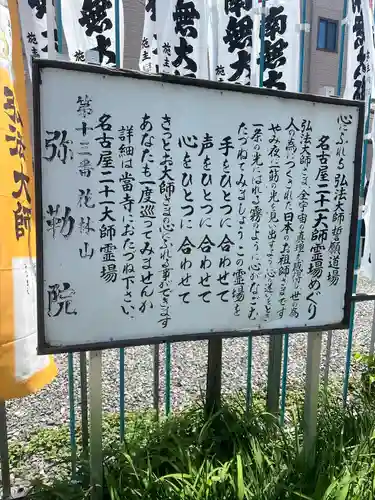 心にふれる 弘法大師誓願道場
名古屋二十一大師霊場めぐり
弘法大師さま、全宇宙の真理を感得し
人の為につくされた日本の大祖師さまです
やみ夜に一筋の光を見い出すよう心の迷に
一条の光にはれる霧のように心なごむ
たづねてみましょう この霊場を
手をひとつに合わせて
声をひとつに合わせて
心をひとつに合わせて
きっとお大師さまの心にふれる事ができます
あなたも一度巡ってみませんか
詳細は当寺におたづね下さい。
名古屋二十一大師霊場
第十三番 花林山
弥勒院
弘法大師
南無大師
南無大
無大
施主
施主